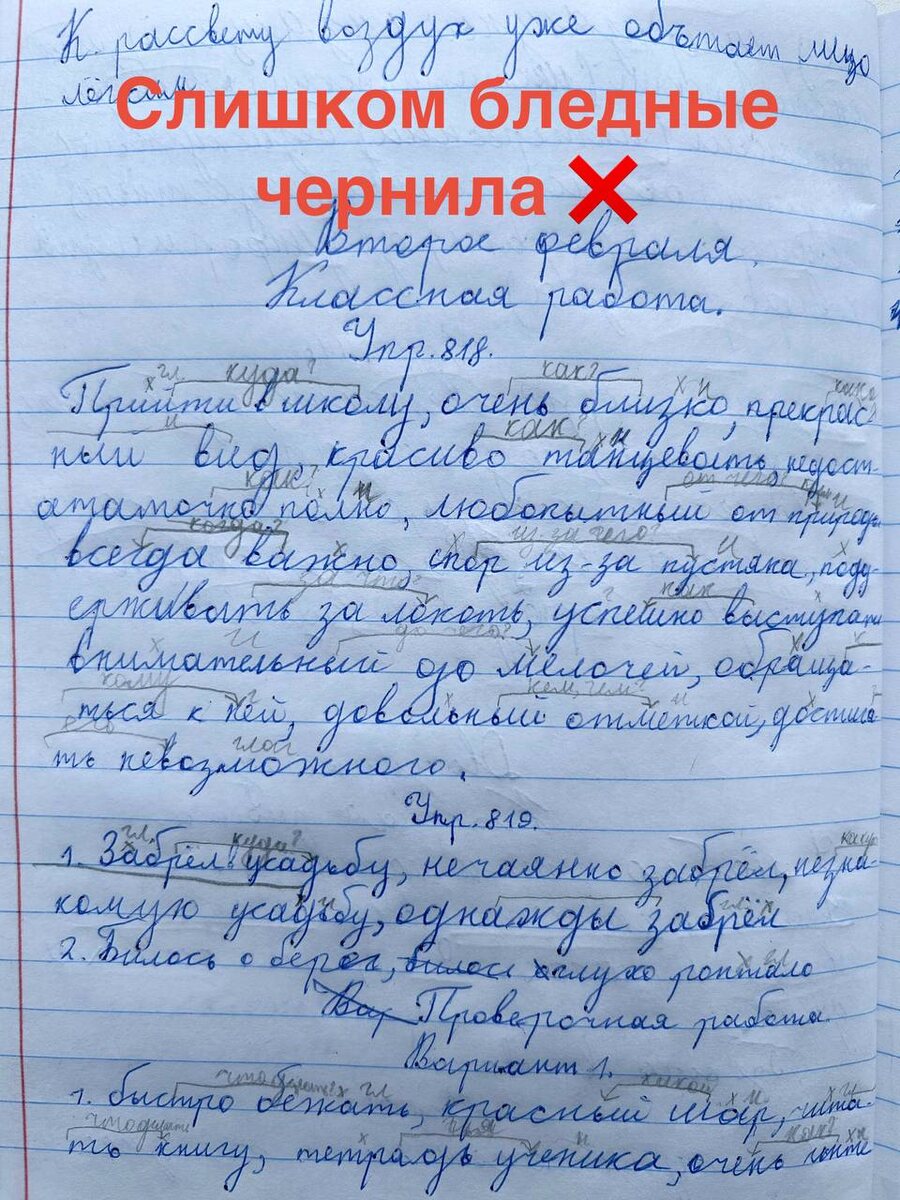 К рассвету воздух уже обътает лицо
лёгким
Слишком бледные
чернила ❌
Второе февраля.
Классная работа.
Упр. 818.
гл. куда? как? х н
Прийти в школу, очень близко, прекрас-
как?
ный вид, красиво танцевать, недост-
как? от чего?
аточно полно, любопытный от природы
когда? из-за чего?
всегда важно, спор из-за пустяка, подд-
за что? как
ерживать за локоть, успешно выступать
до чего?
внимательный до мелочей, обраща-
кому кем, чем?
ться к ней, довольный отметкой, достига-
глаг
ть невозможного.
Упр. 819.
гл. куда? какую
1. Забрёл в усадьбу, нечаянно забрёл, незна-
комую усадьбу, однажды забрёл
2. Билось о берег, глухо роптало
Проверочная работа
Вариант 1.
что делать? гл какой
1. быстро бежать, красный шар, чита-
что делать
ть книгу, тетрадь ученика, очень